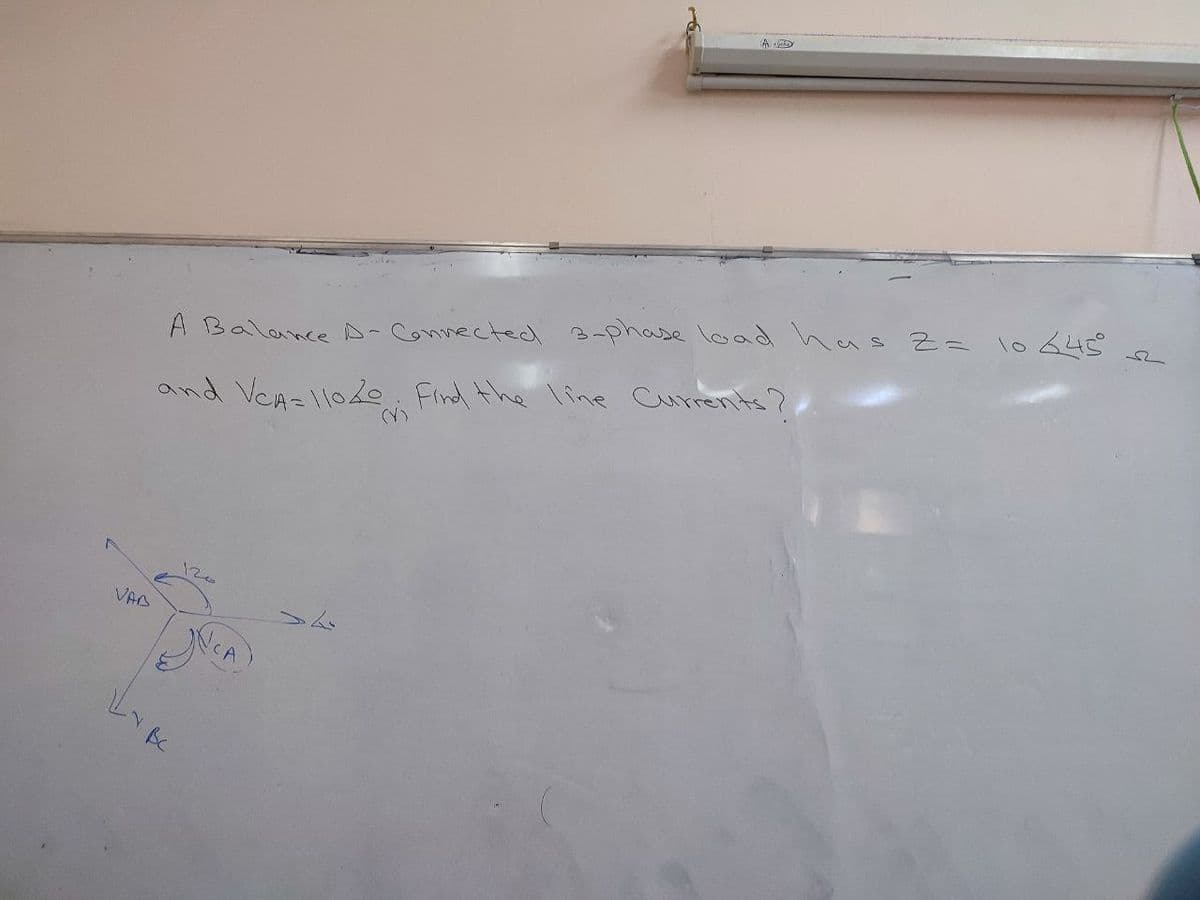 A Balance Δ- Connected 3-phase load has Z = 10∠45° Ω
and VCA=110∠0 (V); Find the line Currents?
120
VAB
VCA
VBC